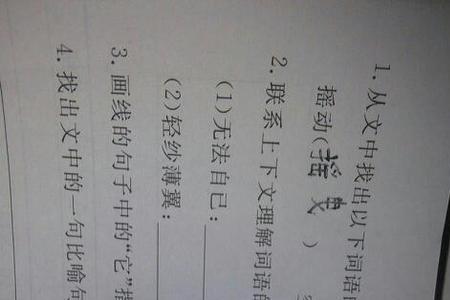 1.从文中找出以下词语
摇动(摇曳 )
2.联系上下文理解词语的
(1)无法自己:
(2)轻纱薄翼:
3.画线的句子中的“它”指
4.找出文中的一句比喻句